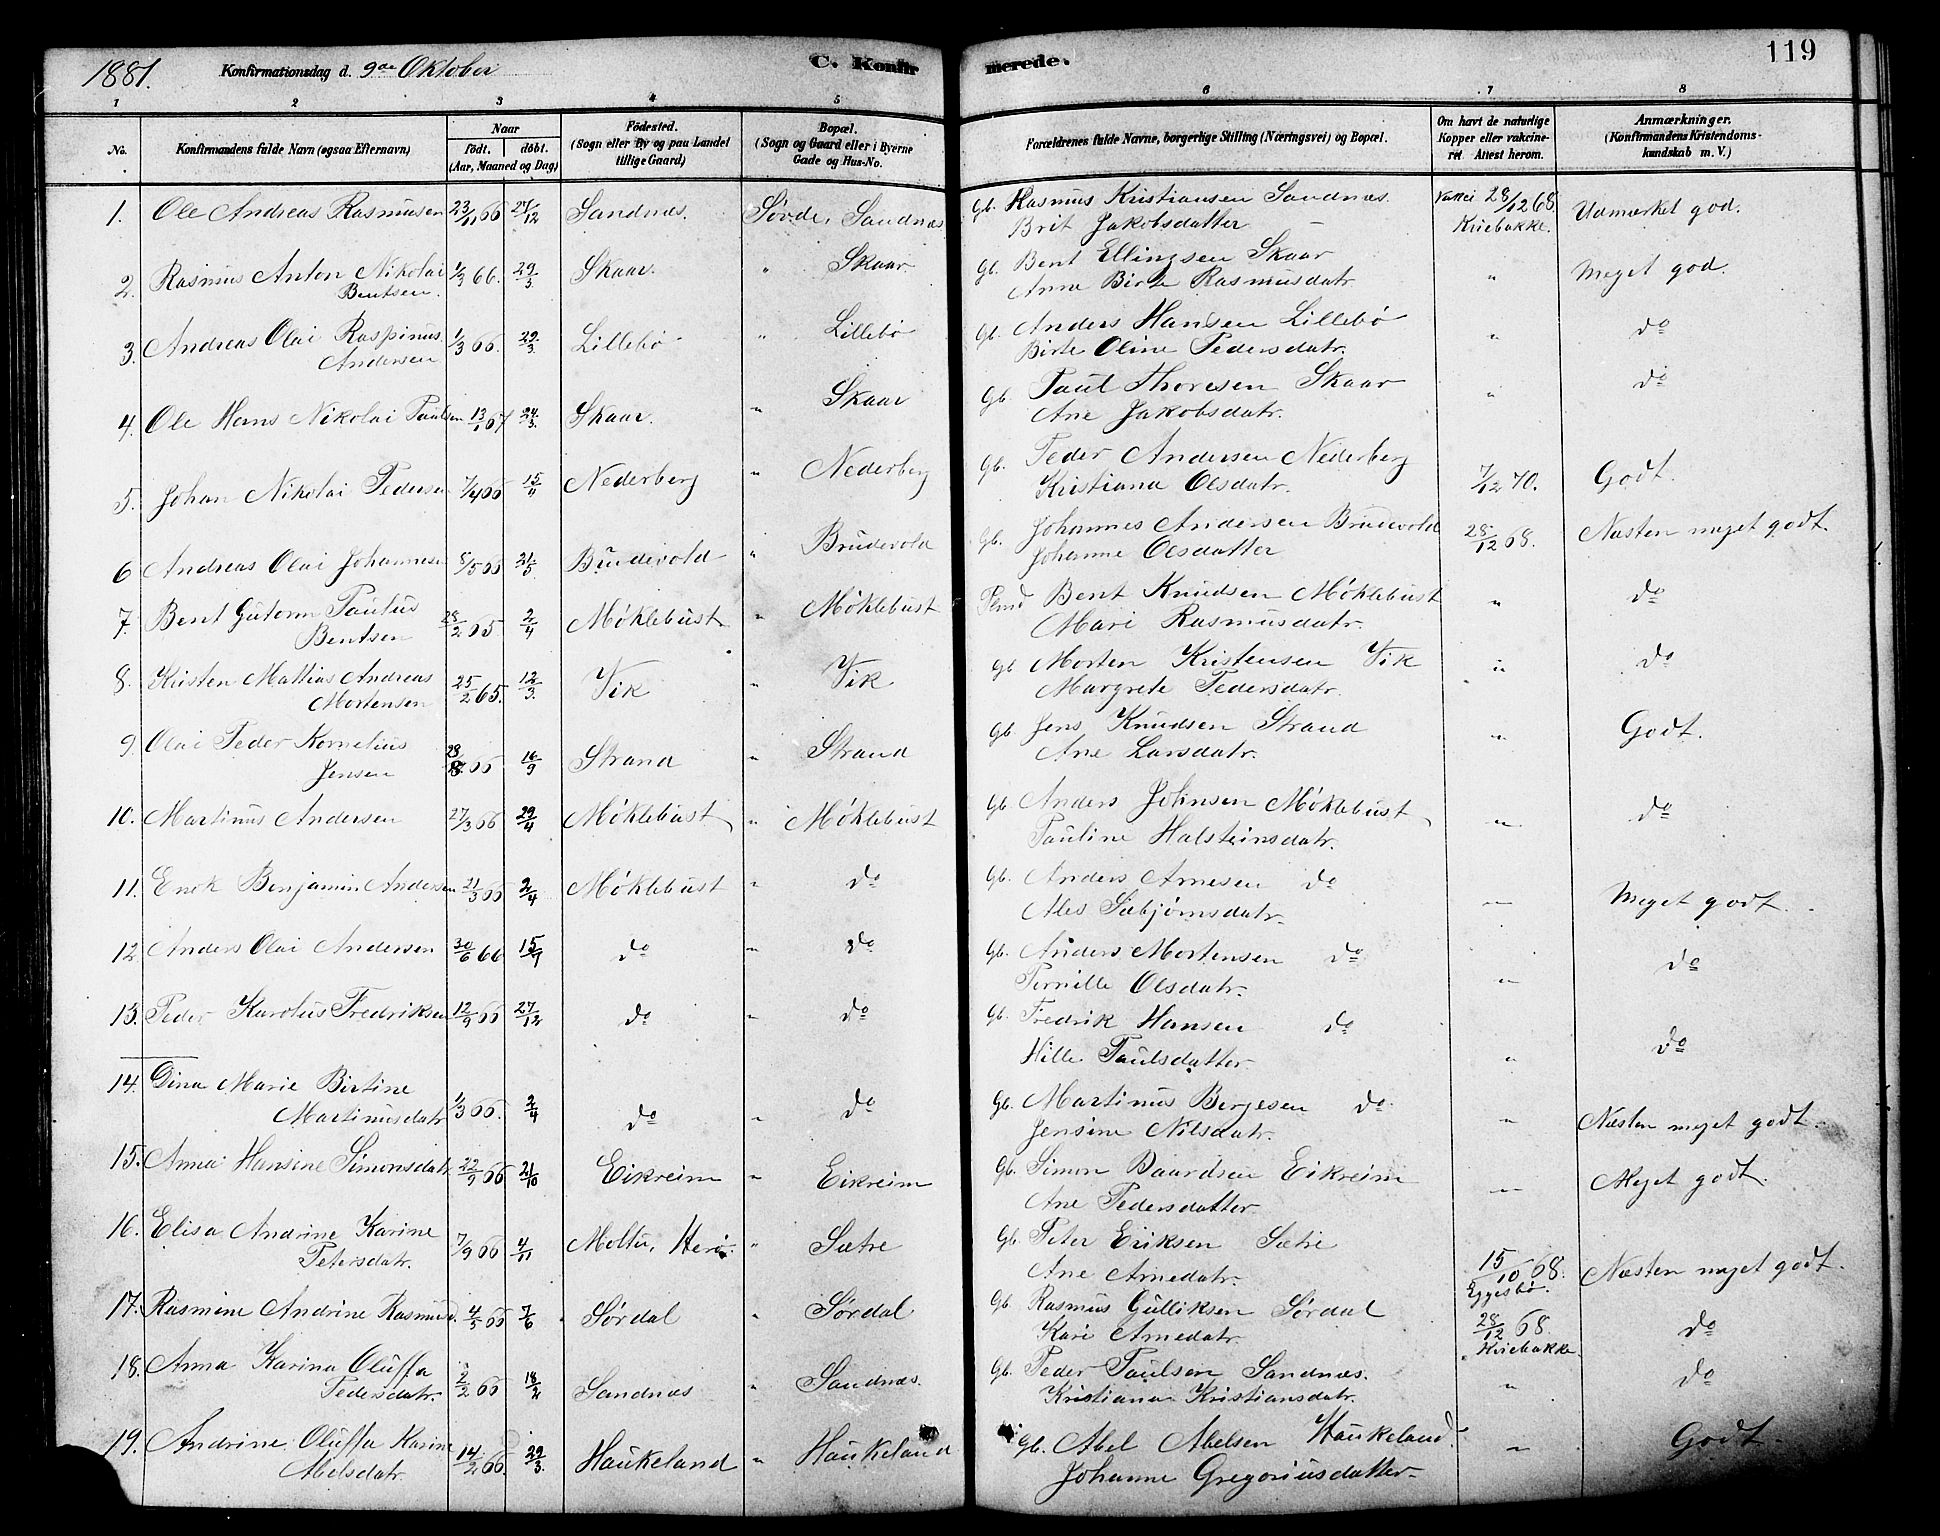 1881. Konfirmationsdag d. 9de Oktober C. Konfirmerede. 119
1 2 3 4 5 6 7 8
No. Konfirmandens fulde Navn (ogsaa Efternavn) Naar født. døbt. (Aar, Maaned og Dag) Fødested. (Sogn eller By og paa Landet tillige Gaard) Bopæl. (Sogn og Gaard eller i Byerne Gade og Hus-No. Forældrenes fulde Navne, borgerlige Stilling (Næringsvei) og Bopæl. Om havt de naturlige Kopper eller vakcineret Attest herom. Anmærkninger. (Konfirmandens Kristendomskundskab m. V.)
1. Ole Andreas Rasmussen 23/11 66 27/12 Sandnæs. Søvde, Sandnæs Gb. Rasmus Kristiansen Sandnæs. 28/12 68. Udmærket god.
Brit Jakobsdatter — Kriebakke.
2. Rasmus Anton Nikolai 1/3 66. 29/3 Skaar. " Skaar Gb. Bent Ellingsen Skaar " Meget god.
Bentsen. Anne Birte Rasmusdatr.
3. Andreas Olai Raspinus 1/3 66. 29/3. Lillebø " Lillebø Gb. Anders Hansen Lillebø " do
Andersen Birte Oline Pedersdatr.
4. Ole Hans Nikolai Paulsen 13/1 67 24/3. Skaar. " Skaar Gb. Paul Thoresen Skaar " do
Ane Jakobsdatr.
5. Johan Nikolai Pedersen 7/4 66 15/4 Nederberg " Nederberg Gb. Peder Andersen Nederberg 7/12 70. Godt.
Kristiana Olsdatr.
6 Andreas Olai Johannesen 8/5 66 21/5. Brudevold " Brudevold Gb. Johannes Andersen Brudevold 28/12 68. Næsten meget godt.
Johanne Olsdatter
7. Bent Gutorm Paulus 28/2 65 2/4 Møklebust " Møklebust Bent Knudsen Møklebust " do
Bentsen Mari Rasmusdatr.
8. Kristen Mattias Andreas 25/2 65. 12/3. Vik " Vik Gb Morten Kristensen Vik " do
Mortensen Margrete Pedersdatr.
9. Olai Peder Kornelius 28/8 66 16/9 Strand " Strand Gb Jens Knudsen Strand " Godt.
Jensen Ane Larsdatr.
10. Martinus Andersen 27/3 66 29/4 Møklebust " Møklebust Gb. Anders Johnsen Møklebust " do
Pauline Halsteinsdatr.
11. Enok Benjamin Andersen 21/3 66 2/4 Møklebust " do Gb. Anders Arnesen do " Meget godt.
Ales Sæbjørnsdatr.
12 Anders Olai Andersen 30/6 66 15/7 do " do Gb. Anders Mortensen do " do
Pernille Olsdatr.
13. Peder Karolus Fredriksen 12/9 66 27/12 do " do Gb. Fredrik Hansen do " do
Hille Paulsdatter
14. Dina Marie Birtine 1/3 66. 2/4 do " do Gb. Martinus Berjesen do " Næsten meget godt.
Martinusdatr Jensine Nilsdatr.
15. Anna Hansine Simonsdatr 22/9 66 21/10 Eikreim " Eikreim Gb. Simon Baardsen Eikreim " Meget godt.
Ane Pedersdatter
16. Elisa Andrine Karine 7/9 66 4/11 Moltu, Herø. " Sætre Gb. Peter Eriksen Sætre 15/10 68. Næsten meget godt.
Petersdatr. Ane Arnedatr. Eggesbø.
17. Rasmine Andrine Rasmusd. 4/5 66 7/6 Sørdal " Sørdal Gb. Rasmus Gulliksen Sørdal 28/12 68 do
Kari Arnedatr. Kriebakke.
18. Anna Karina Oluffa 2/2 66 18/2 Sandnæs " Sandnæs. Gb. Peder Paulsen Sandnæs. " do
Pedersdatr. Kristiana Kristiansdatr.
19. Andrine Oluffa Karine 14/2 66. 29/3. Haukeland " Haukeland Gb. Abel Abelsen Haukeland. " Godt
Abelsdatr. Johanne Gregoriusdatter